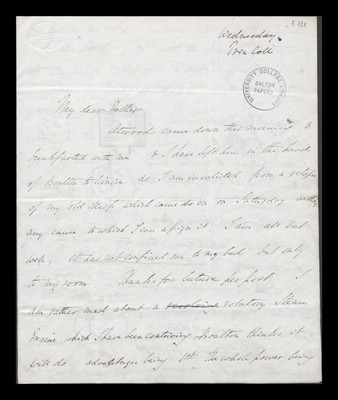 Wednesday
Trin Coll
UNIVERSITY COLLEGE LONDON
GALTON
PAPERS
My dear Father
Atwood came down this morning &
breakfasted with me & I have left him in the hands
of Boulton to as I am invalided from a relapse
of my old illness which came on on Saturday without
any cause to which I can assign it. I am all but
well, it has not confined me to my bed but only
to my room Thanks for lecture per post I
am rather mad about a rotatory Steam
Engine which I have been contriving, Boulton thinks it
will do. advantages being 1st The whole power being